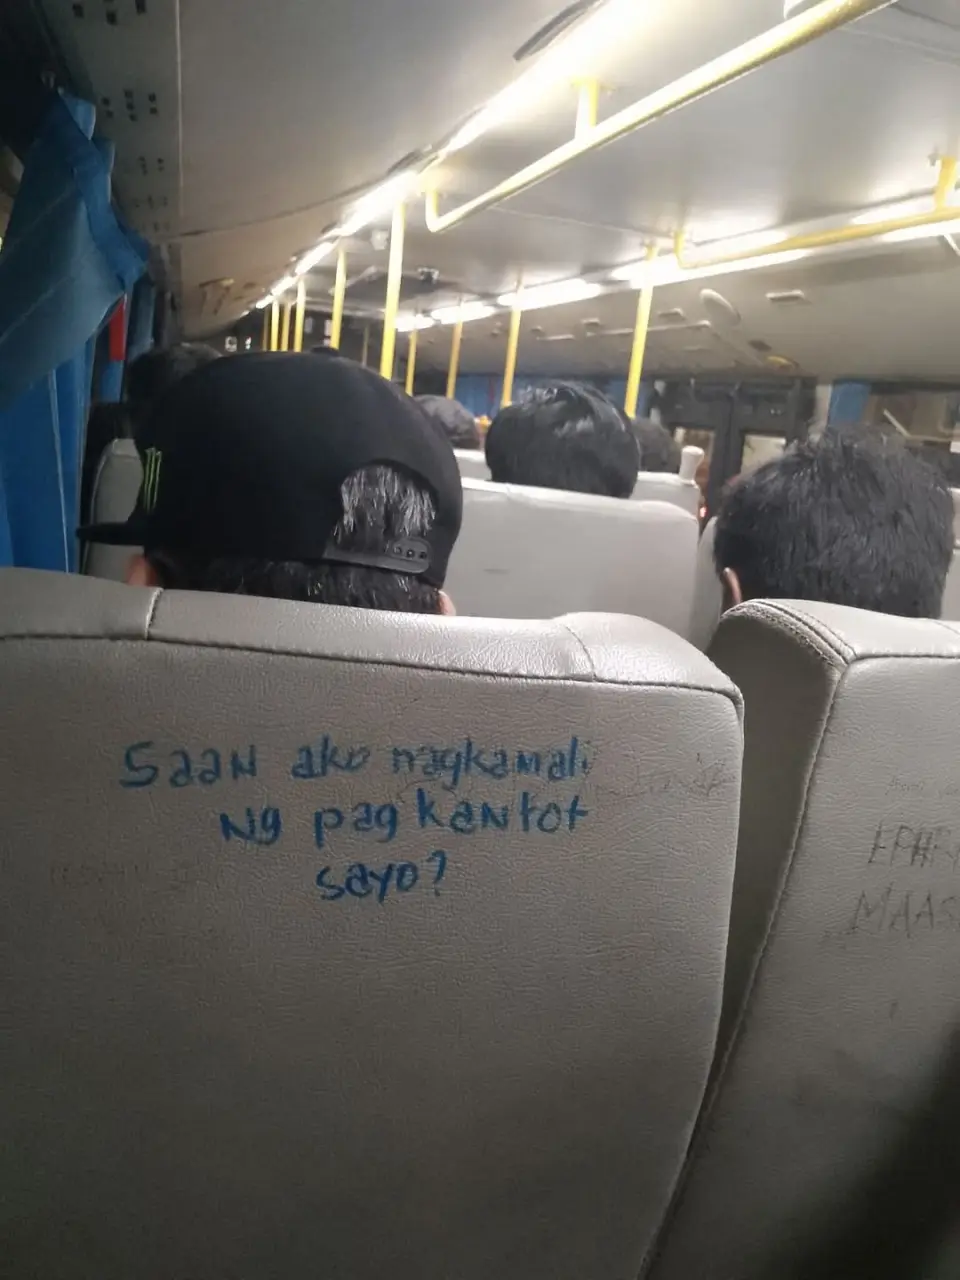 Saan ako nagkamali
ng pagkantot
sayo?